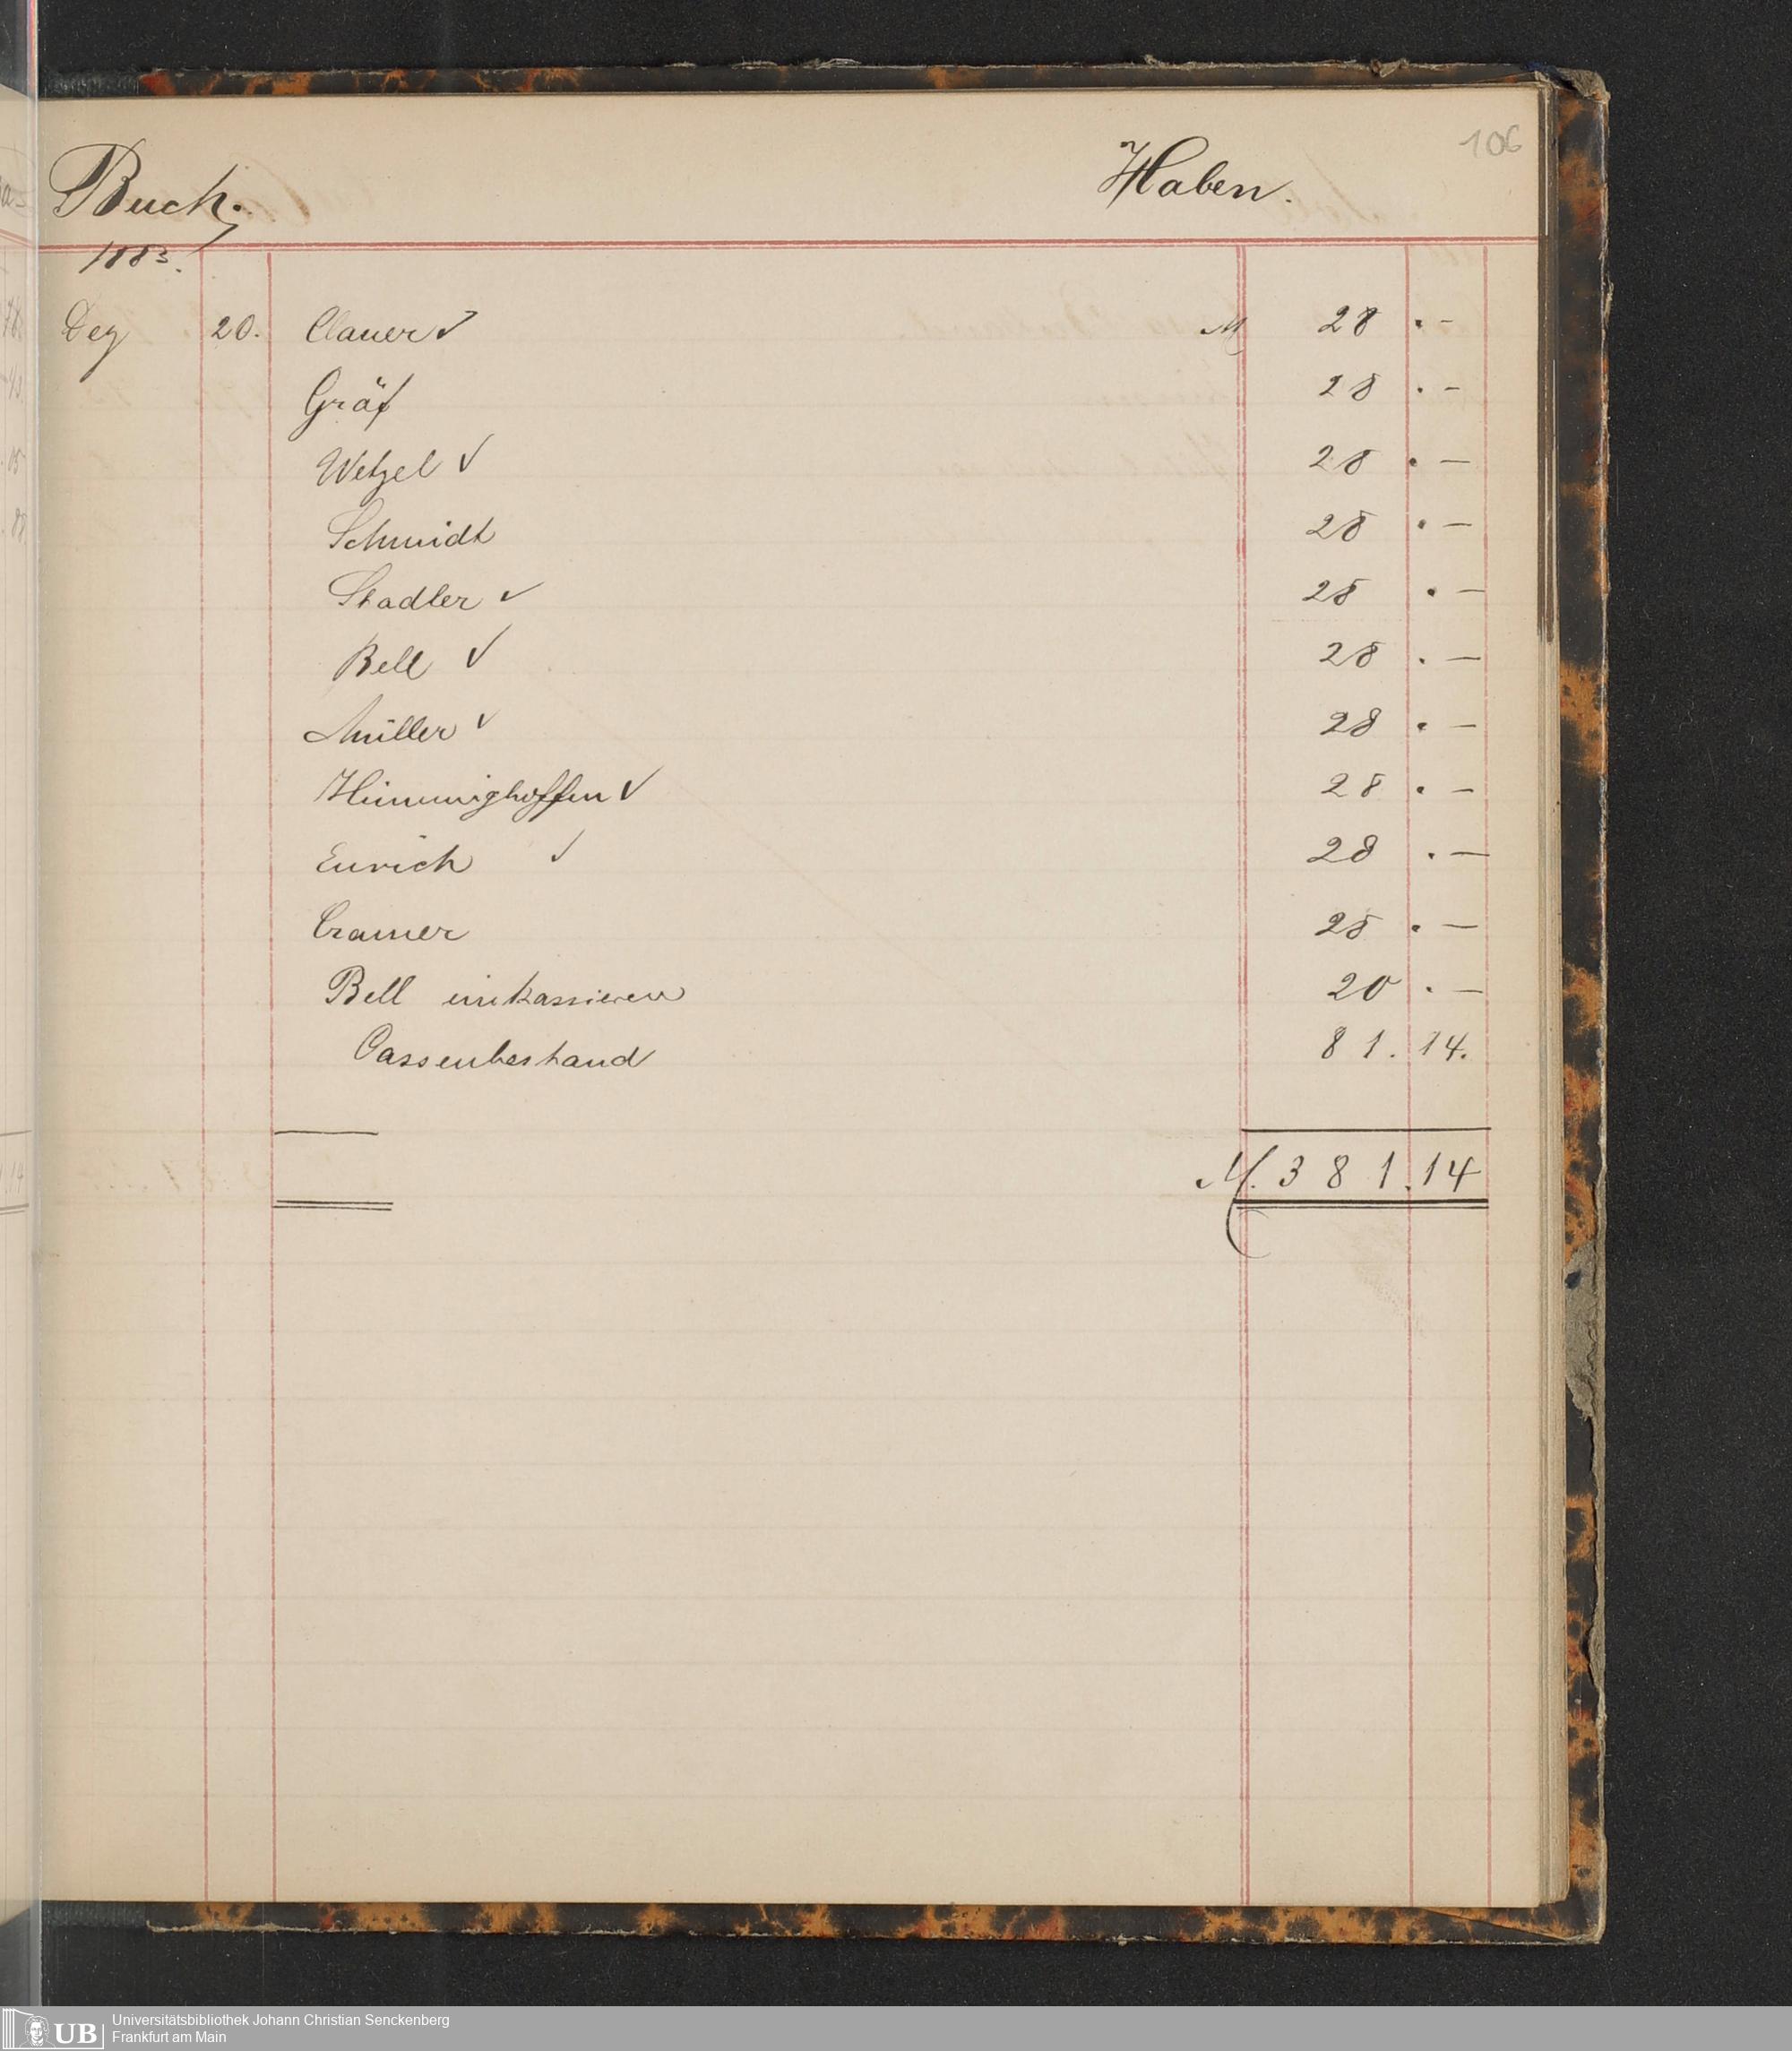 106
Buch.
Haben.
1883.
Dez 20. Clauer ✓ M 28 . -
Gräf 28 . -
Wetzel ✓ 28 . -
Schmidt 28 . -
Stadler ✓ 28 . -
Bell ✓ 28 . -
Müller ✓ 28 . -
Himmighoffen ✓ 28 . -
Eurich ✓ 28 . -
Cramer 28 . -
Bell einkassieren 20 . -
Cassenbestand 81. 14.
M. 381.14
UB
Universitätsbibliothek Johann Christian Senckenberg
Frankfurt am Main